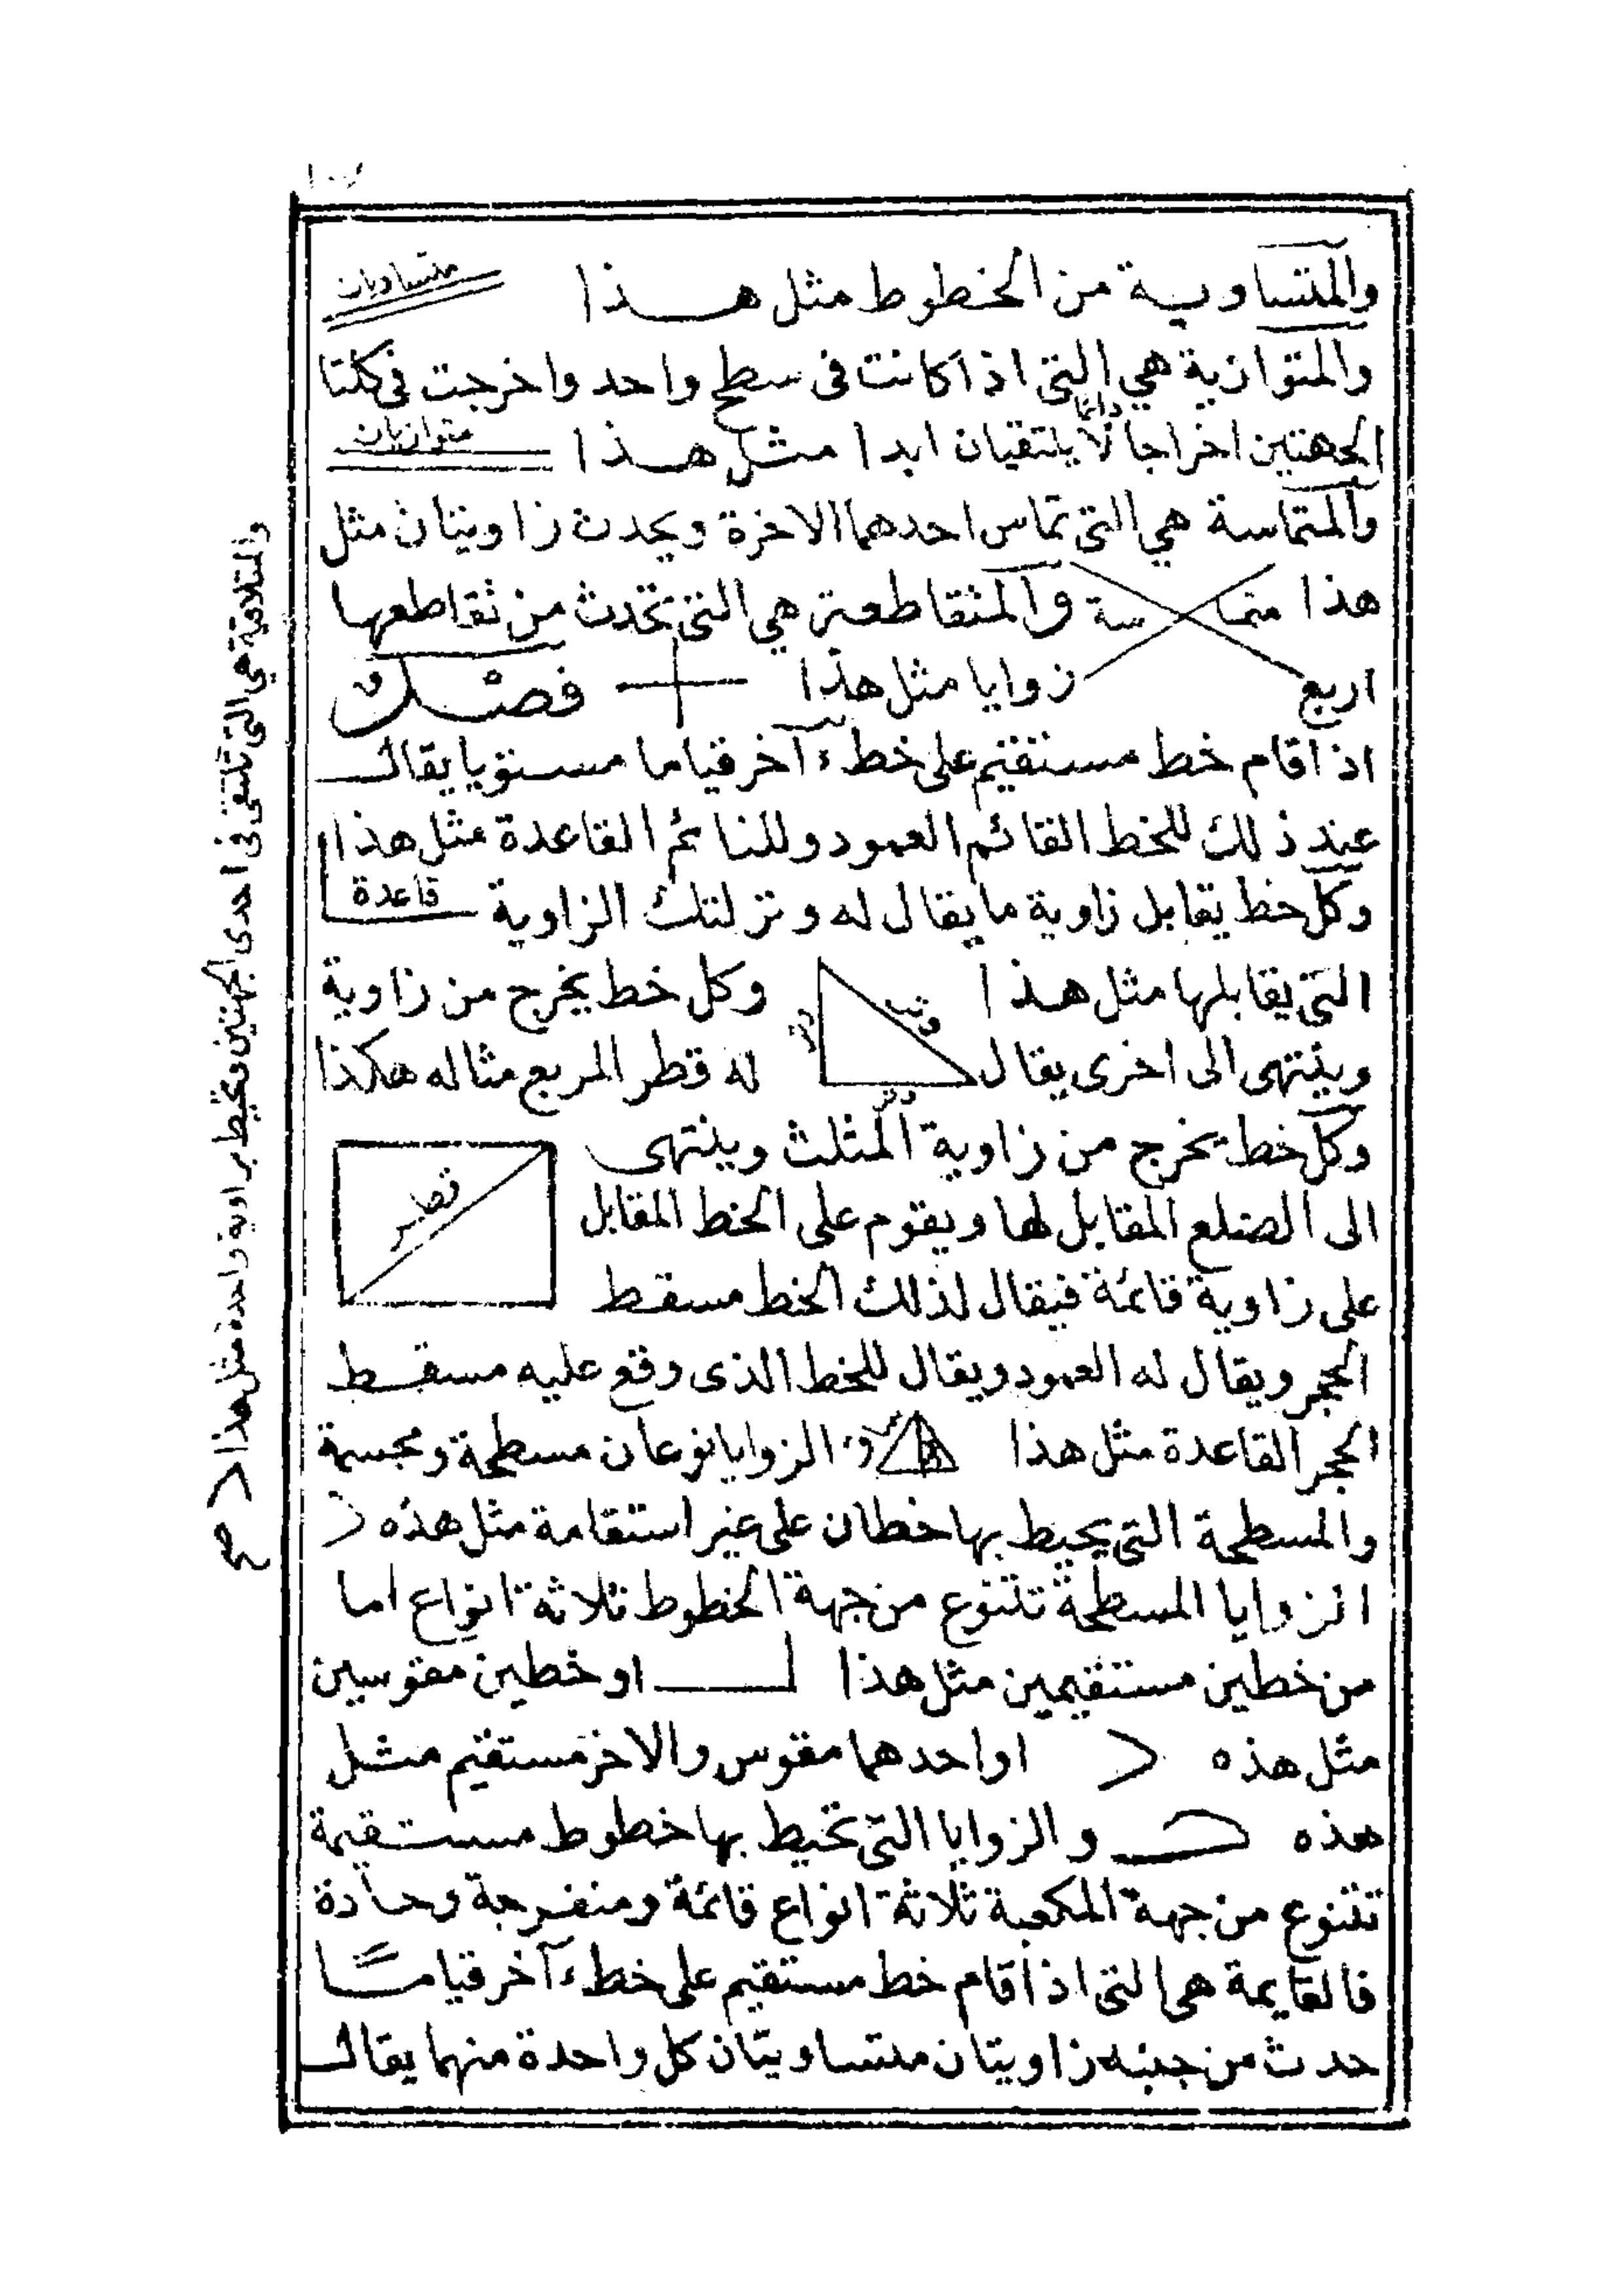 والمتساوية من الخطوط مثل هـذا متساويات
والمتوازية هي التى اذا كانت فى سطح واحد واخرجت فى كلتا
الجهتين اخراجا دائما لا يلتقيان ابدا مثل هـذا متوازيان
والمتماسة هي التى تماس احدهما الاخرة ويحدث زاويتان مثل
هذا متماسة والمتقاطعة هي التى تحدث من تقاطعها
اربع زوايا مثل هذا فصل
اذا قام خط مستقيم على خطء آخر قياما مستويا يقال
عند ذلك للخط القائم العمود وللنائم القاعدة مثل هذا
وكل خط يقابل زاوية ما يقال له وتر لتلك الزاوية قاعدة
التى يقابلها مثل هـذا وتر وكل خط يخرج من زاوية
وينتهى الى اخرى يقال له قطر المربع مثاله هكذا
وتر
وكل خط يخرج من زاوية المثلث وينتهى
الى الضلع المقابل لها ويقوم على الخط المقابل قطر
على زاوية قائمة فيقال لذلك الخط مسقط
الحجر ويقال له العمود ويقال للخط الذى وقع عليه مسقط
الحجر القاعدة مثل هذا الزوايا نوعان مسطحة ومجسمة
والمسطحة التى يحيط بها خطان على غير استقامة مثل هذه
الزوايا المسطحة تتنوع من جهة الخطوط ثلاثة انواع اما
من خطين مستقيمين مثل هذا او خطين مقوسين
مثل هذه او احدهما مقوس والاخر مستقيم مثل
هذه والزوايا التى تحيط بها خطوط مستقيمة
تتنوع من جهة المكعبة ثلاثة انواع قائمة ومنفرجة وحادة
فالقايمة هى التى اذا قام خط مستقيم على خطء آخر قياماً
حدث من جنبه زاويتان متساويتان كل واحدة منهما يقال
والمتلاقية هي التى تلتقى فى احدى الجهتين وتحيط بزاوية واحدة مثل هذا صح